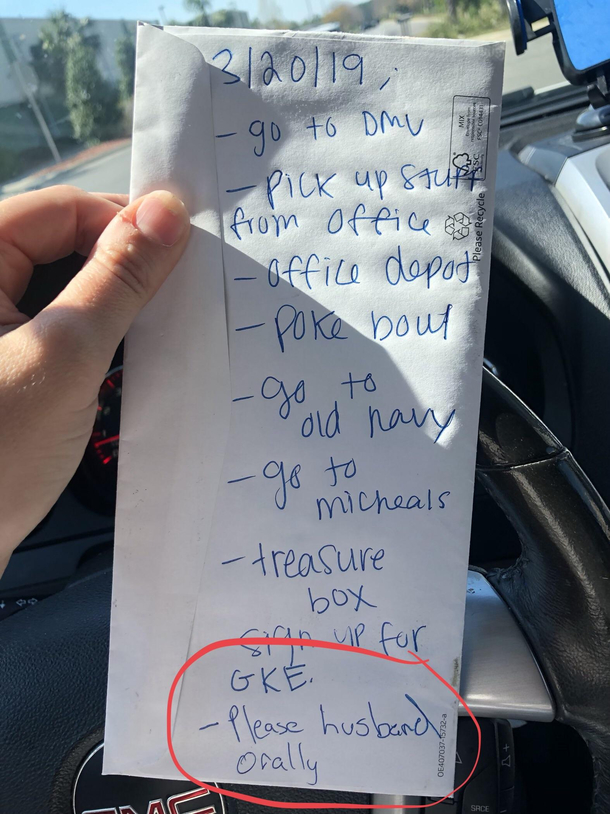 3/20/19,
- go to DMV
- pick up stuff
from office
- office depot
- poke bowl
- go to
old navy
- go to
micheals
- treasure
box
sign up for
GKE.
- Please husband
orally
MIX
FSC
Please Recycle
GMC
SRCE